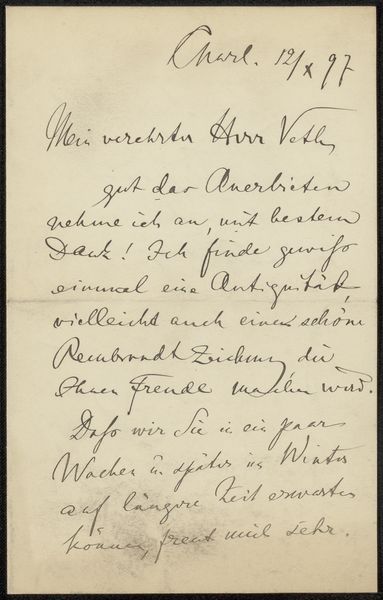 Charl. 12/X 97
Mein verehrter Herr Veth,
gut das Anerbieten
nehme ich an, mit bestem
Dank! Ich finde gewiss
einmal eine Antiquität,
vielleicht auch eine schöne
Rembrandt Zeichnung die
Ihnen Freude machen wird.
Dass wir Sie in ein paar
Wochen u. später im Winter
auf längere Zeit erwarten
können, freut mich sehr.